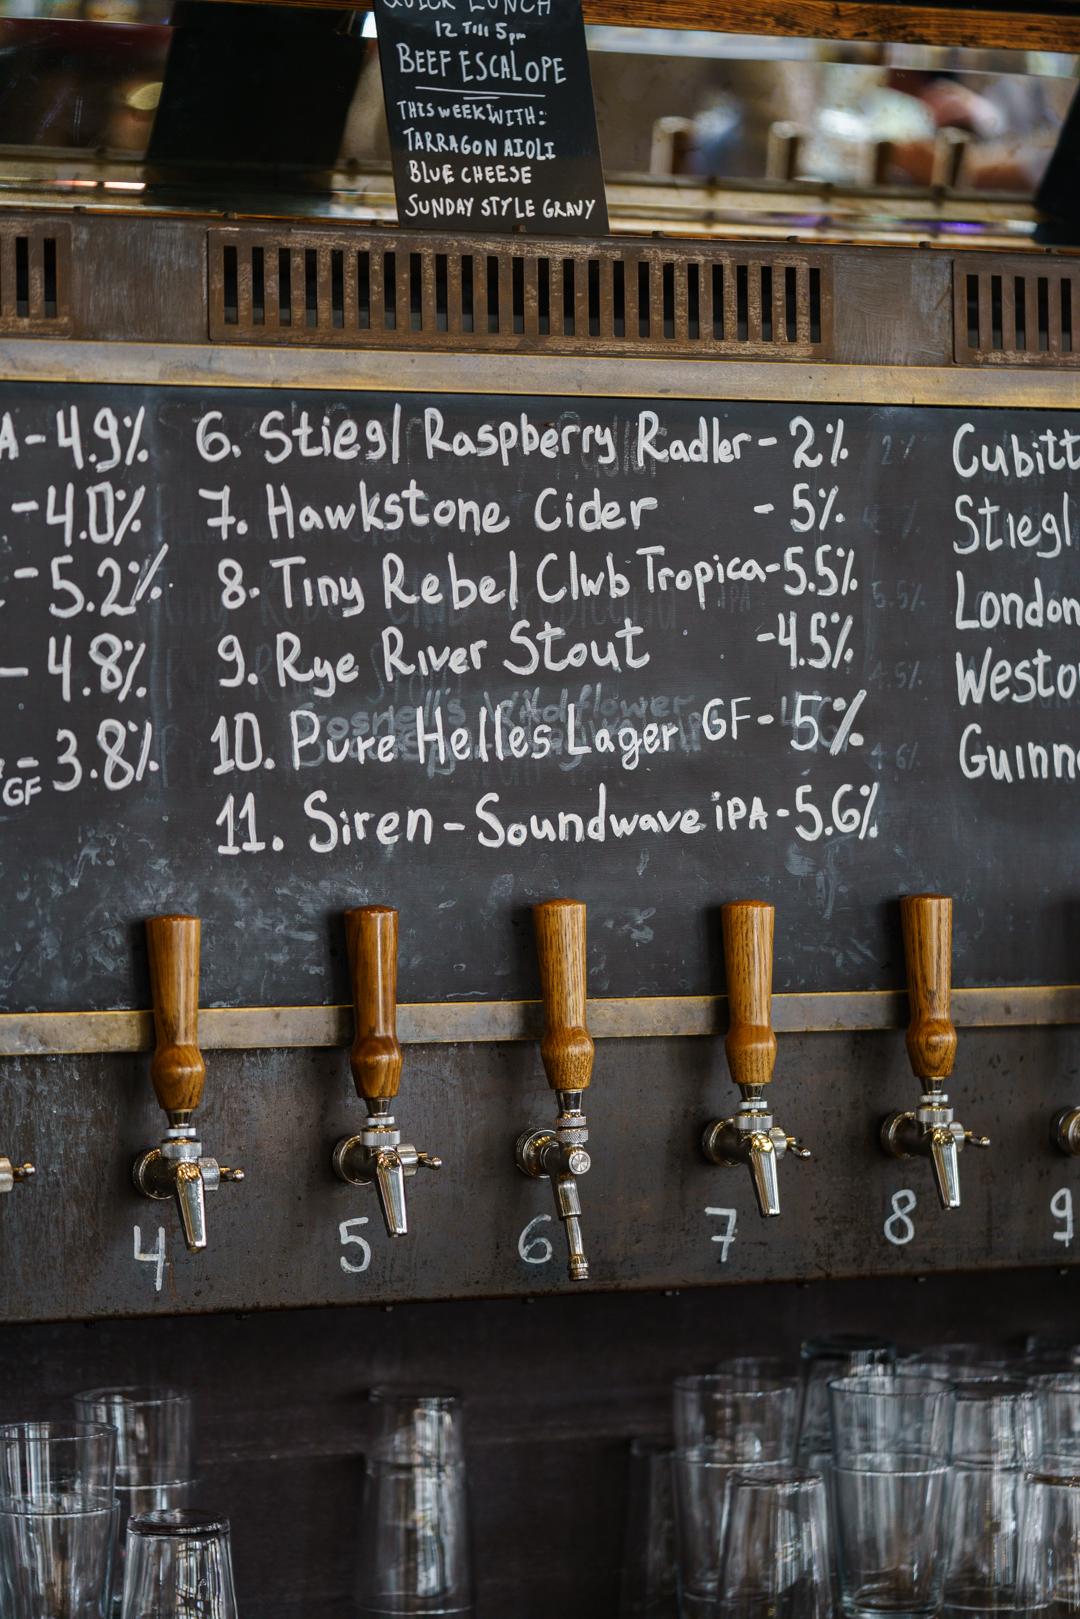 QUICK LUNCH
12 Till 5pm
BEEF ESCALOPE
THIS WEEK WITH:
TARRAGON AIOLI
BLUE CHEESE
SUNDAY STYLE GRAVY
A-4.9%
-4.0%
-5.2%
-4.8%
GF-3.8%
6. Stiegl Raspberry Radler-2%
7. Hawkstone Cider -5%
8. Tiny Rebel Club Tropica-5.5%
9. Rye River Stout -4.5%
10. Pure Helles Lager GF-5%
11. Siren-Soundwave iPA-5.6%
Cubitt
Stiegl
London
Westo
Guinn
4 5 6 7 8 9